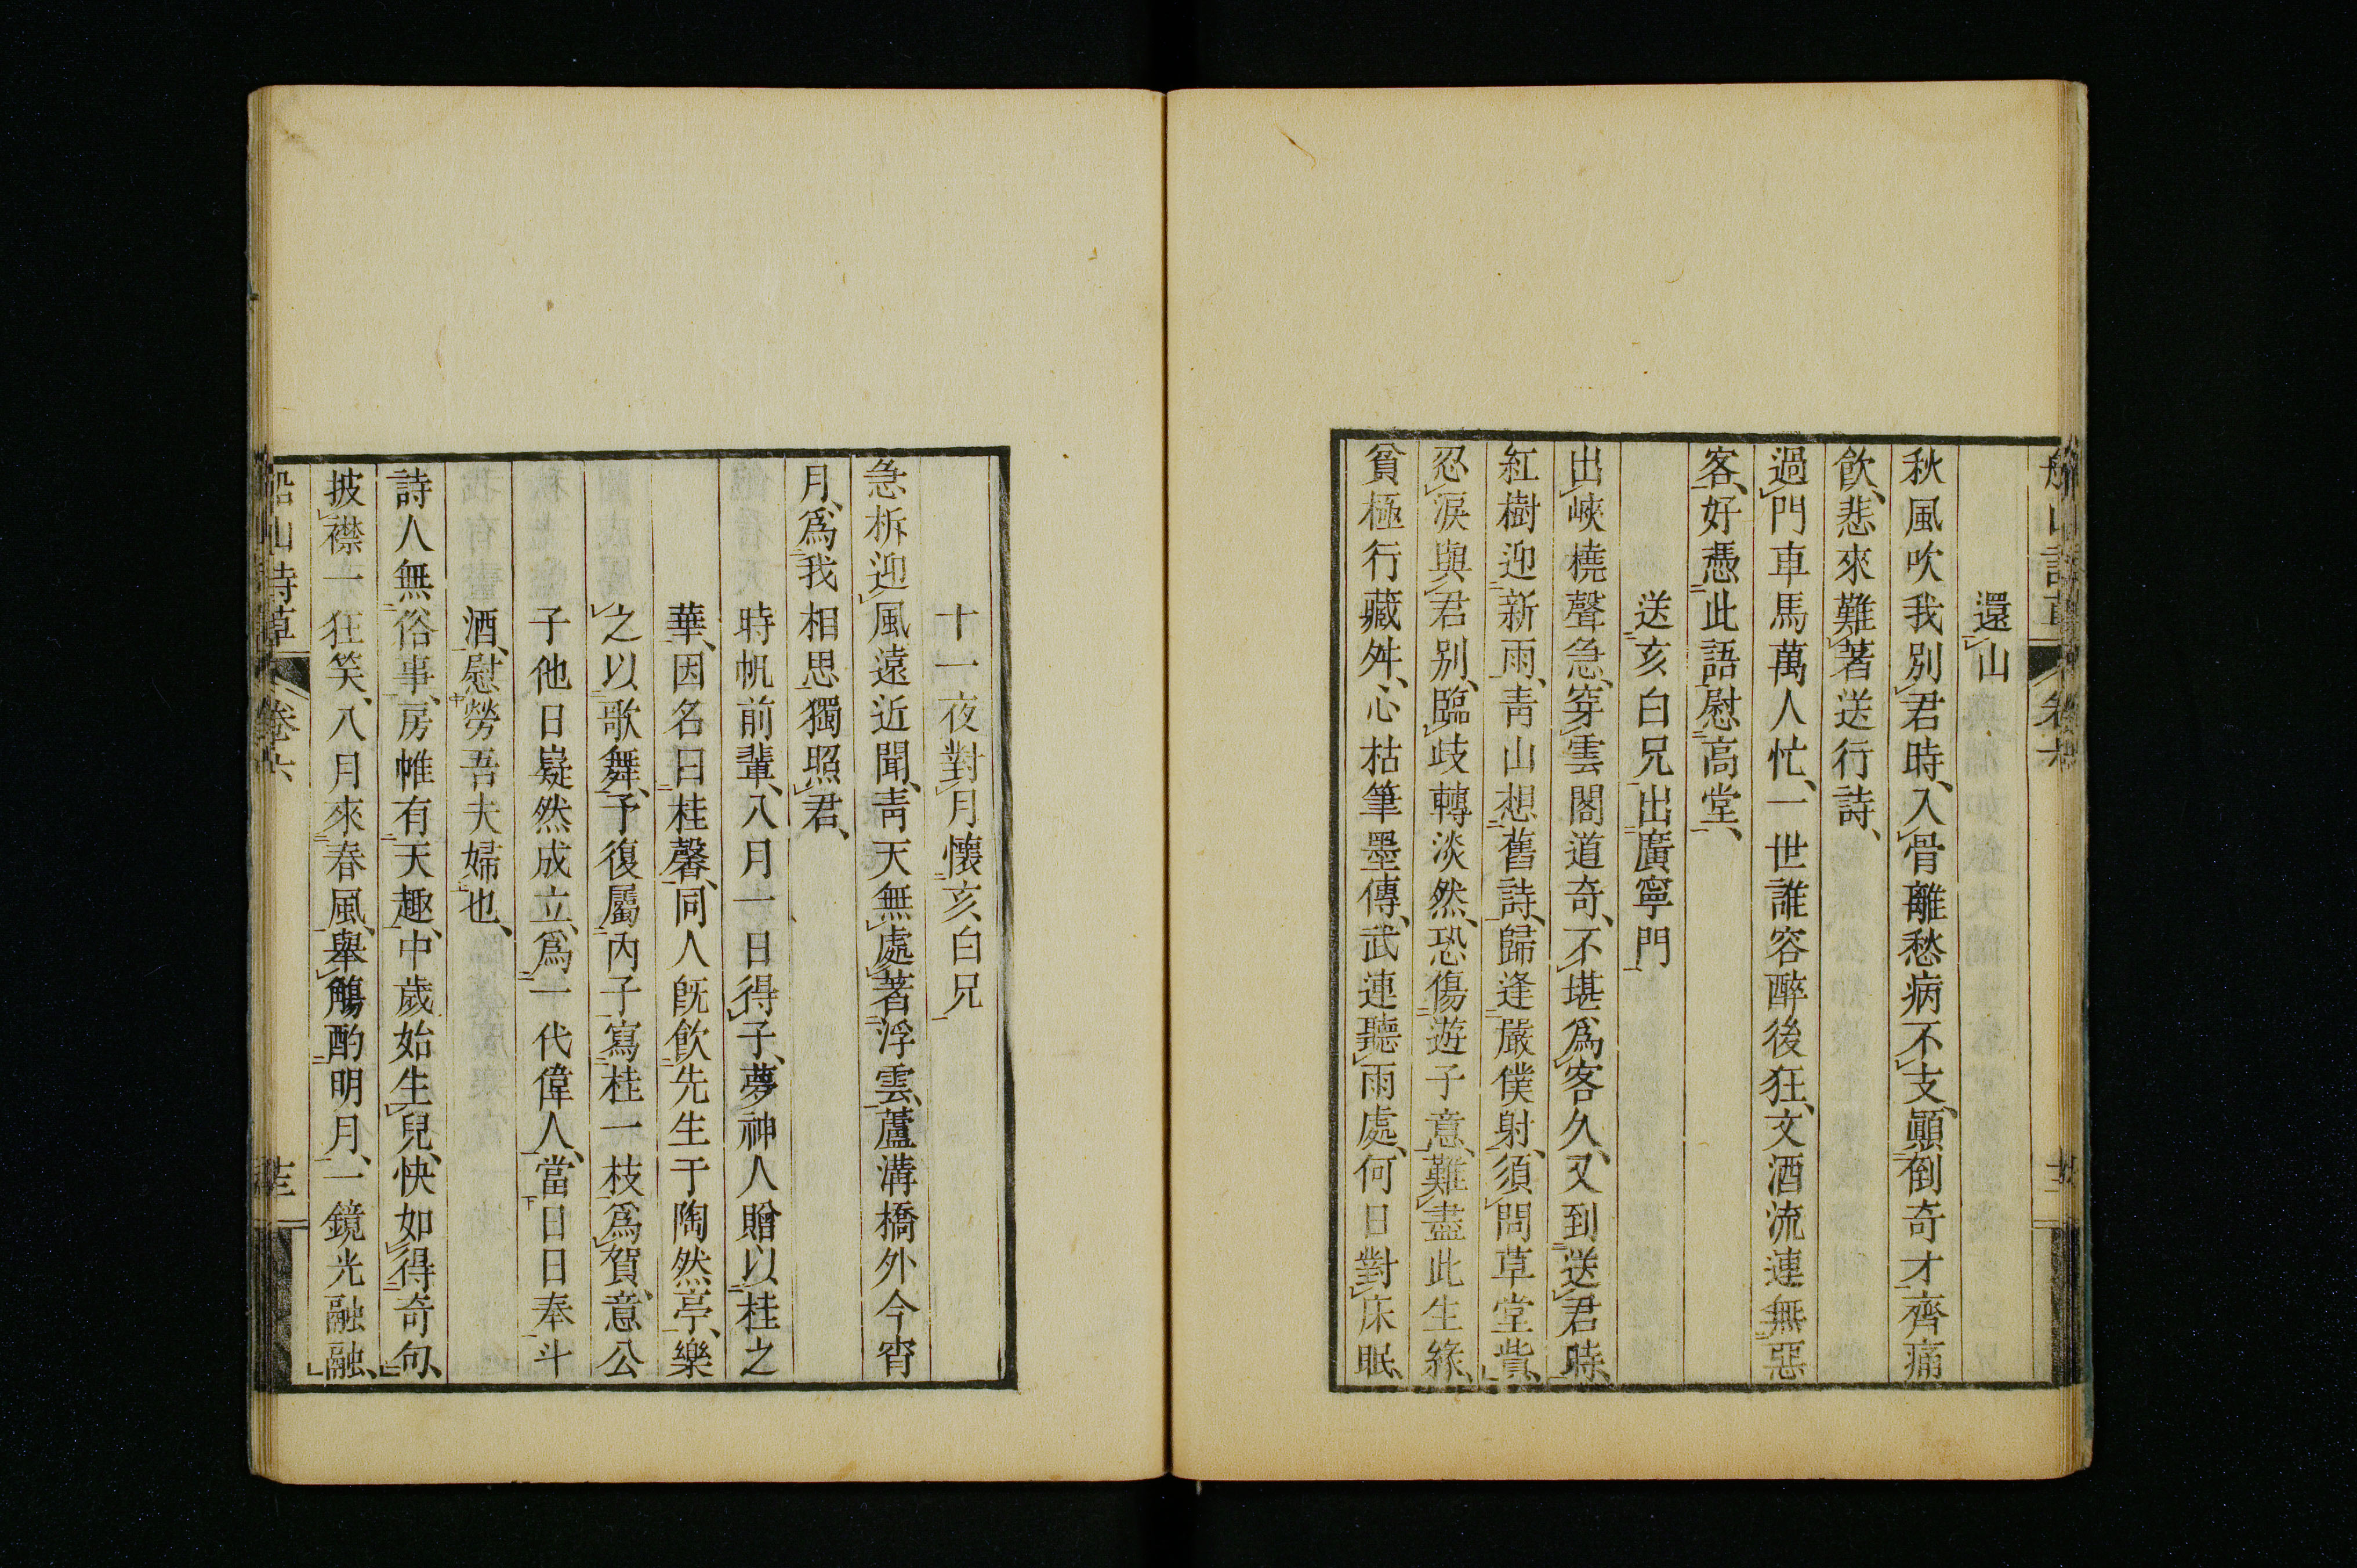 還山
秋風吹我別君時、入骨離愁病不支、顚倒奇才齊痛
飮、悲來難著送行詩、
過門車馬萬人忙、一世誰容醉後狂、文酒流連無惡
客、好憑此語慰高堂、
送亥白兄出廣寧門
出峽橈聲急、穿雲閣道奇、不堪爲客久、又到送君時、
紅樹迎新雨、靑山想舊詩、歸逢嚴僕射、須問草堂貲、
忍淚與君別、臨歧轉淡然、恐傷遊子意、難盡此生緣、
貧極行藏舛、心枯筆墨傳、武連聽雨處、何日對床眠、
十一夜對月懷亥白兄
急柝迎風遠近聞、靑天無處著浮雲、蘆溝橋外今宵
月、爲我相思獨照君、
時帆前輩、八月一日得子、夢神人贈以桂之
華、因名曰桂馨、同人旣飮先生于陶然亭、樂
之以歌舞、予復屬內子寫桂一枝爲賀、意公
子他日嶷然成立、爲一代偉人、當日日奉斗
酒、慰勞吾夫婦也、
詩人無俗事、房帷有天趣、中歲始生兒、快如得奇句、
披襟一狂笑、八月來春風、舉觴酌明月、一鏡光融融、
船山詩草 卷六